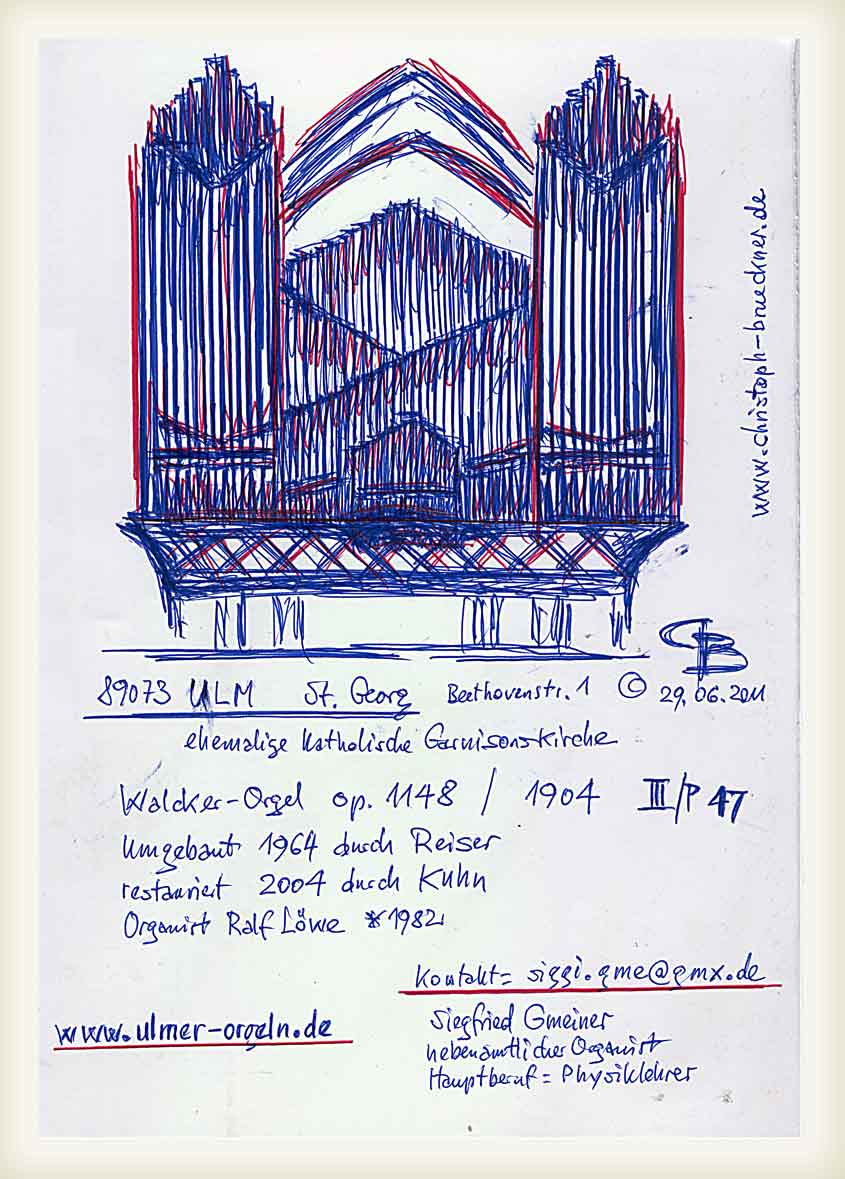 www.christoph-brueckner.de
CB
89073 ULM St. Georg Beethovenstr. 1 © 29.06.2011
ehemalige Katholische Garnisonskirche
Walcker-Orgel op. 1148 / 1904 III/P 47
Umgebaut 1964 durch Reiser
restauriert 2004 durch Kuhn
Organist Ralf Löwe *1982
Kontakt= siggi.gme@gmx.de
www.ulmer-orgeln.de
Siegfried Gmeiner
nebenamtlicher Organist
Hauptberuf= Physiklehrer